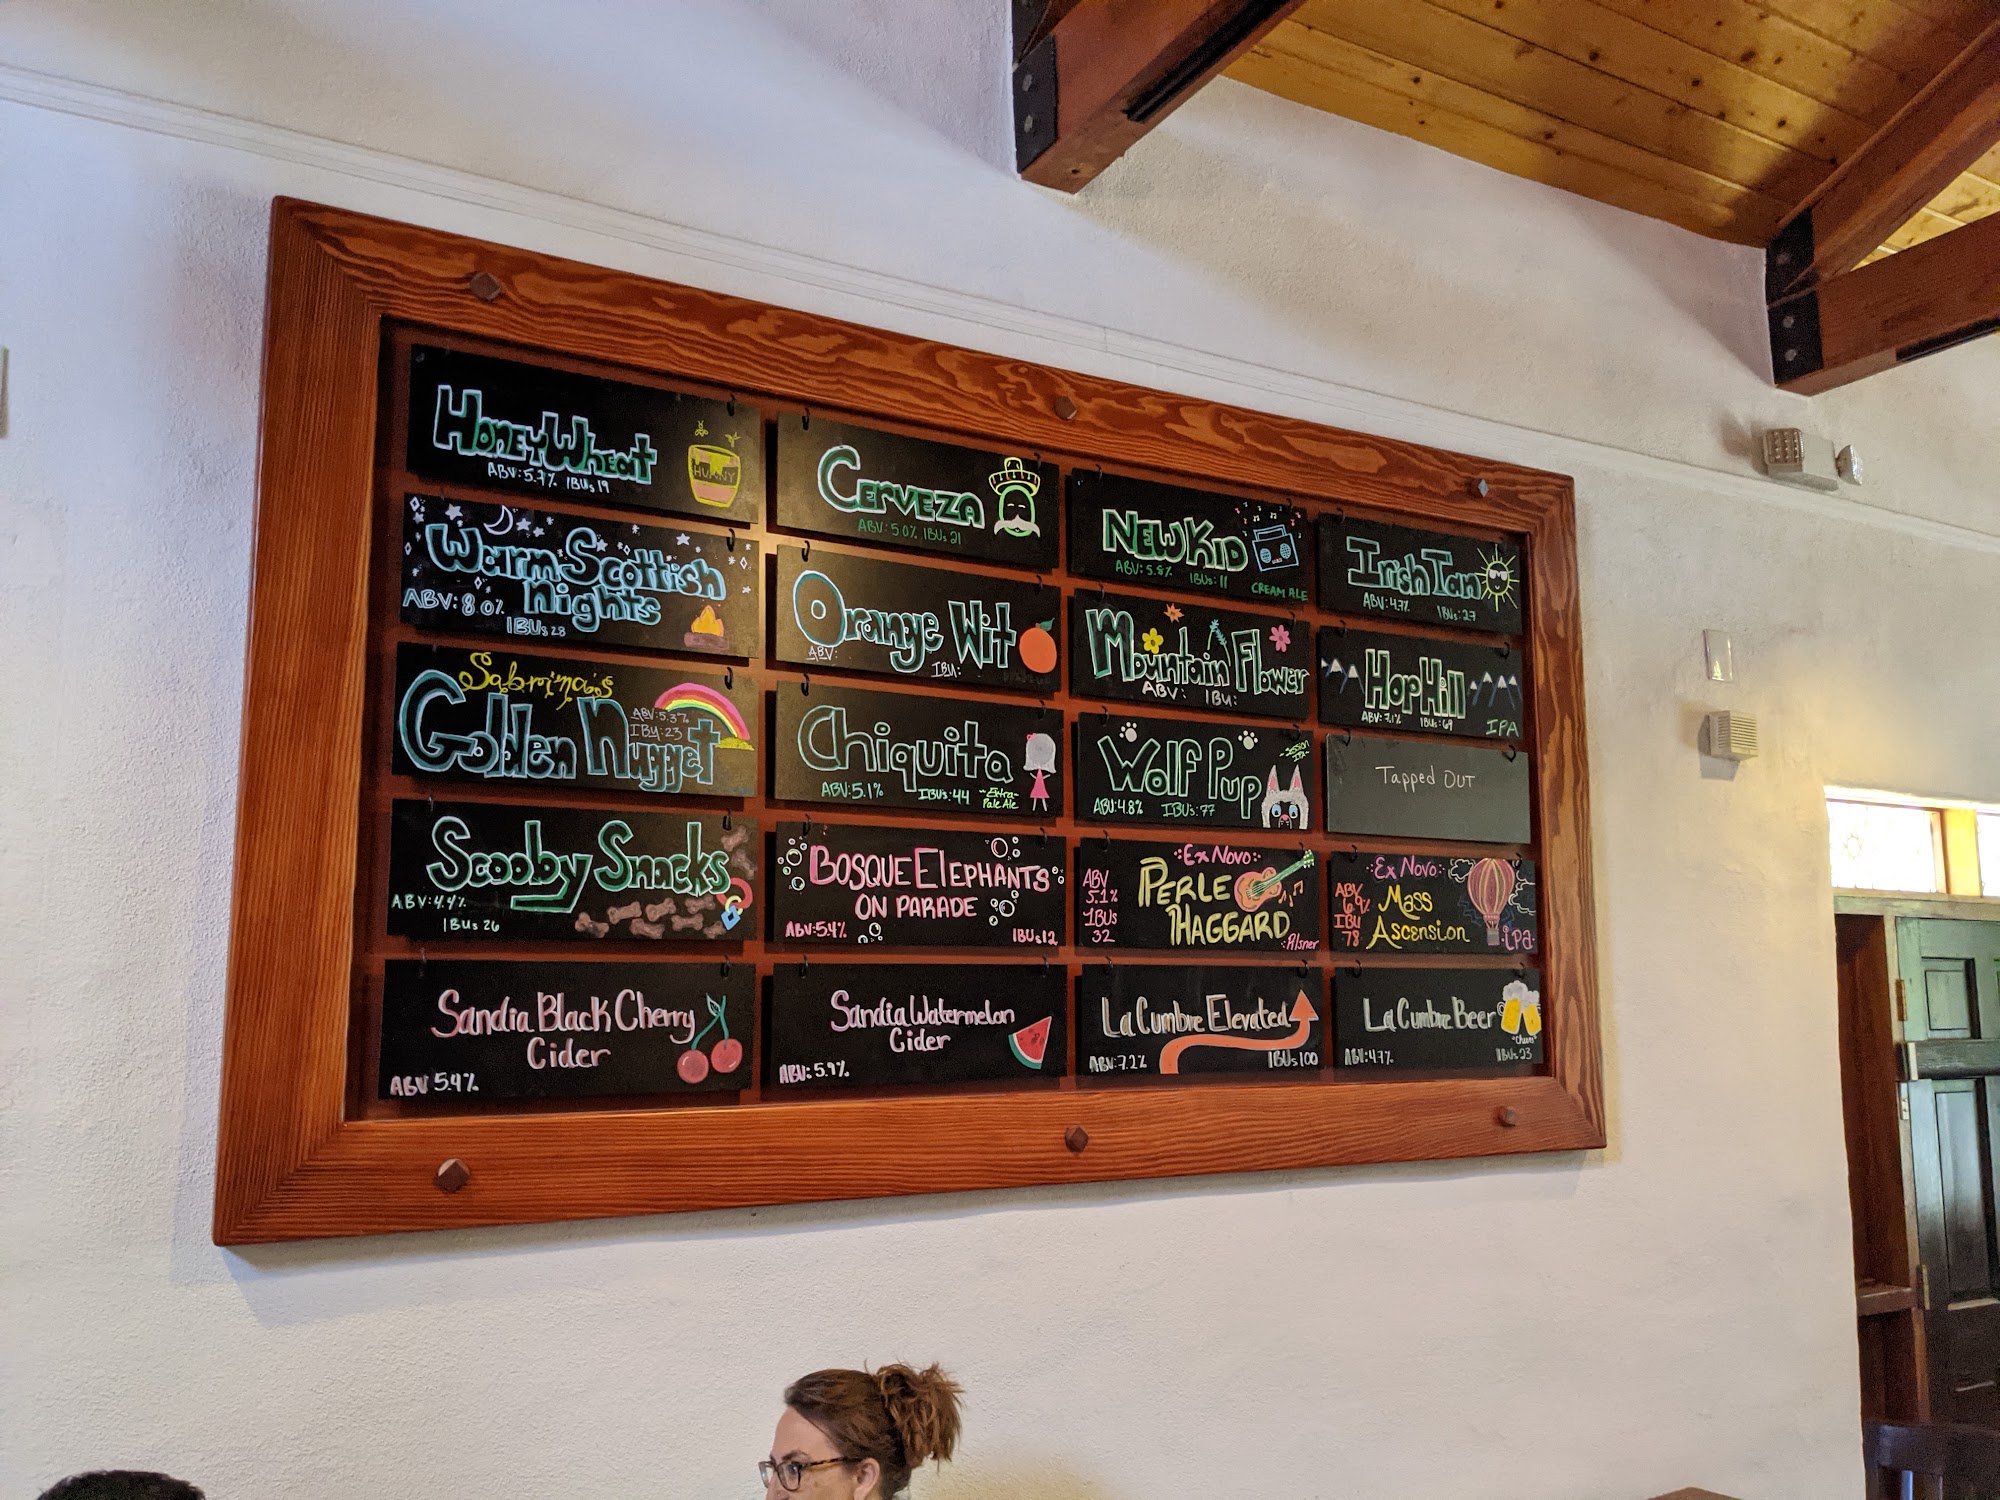 Honey Wheat
ABV: 5.7% IBUs 19
HUNNY
Cerveza
ABV: 5.0% IBUs 21
New Kid
ABV: 5.8% IBUs: 11
CREAM ALE
Irish Tan
ABV: 4.7% IBUs: 27
Warm Scottish
Nights
ABV: 8.0%
IBUs 28
Orange Wit
ABV: IBU:
Mountain Flower
ABV: IBU:
Hop Hill
ABV: 7.1% IBUs: 69 IPA
Sabrina's
Golden Nugget
ABV: 5.3%
IBU: 23
Chiquita
ABV: 5.1% IBUs: 44 ~Extra~
Pale Ale
Wolf Pup
~Session
IPA~
ABV: 4.8% IBUs: 77
Tapped OUT
Scooby Snacks
ABV: 4.4%
IBUs 26
BOSQUE ELEPHANTS
ON PARADE
ABV: 5.4% IBUs 12
Ex Novo
PERLE
HAGGARD
Pilsner
ABV
5.1%
IBUs
32
Ex Novo
Mass
Ascension
ipa
ABV
6.9%
IBU
78
Sandia Black Cherry
Cider
ABV 5.4%
Sandia Watermelon
Cider
ABV: 5.9%
La Cumbre Elevated
ABV: 7.2% IBUs 100
La Cumbre Beer
"Cheers"
ABV: 4.7% IBUs 23